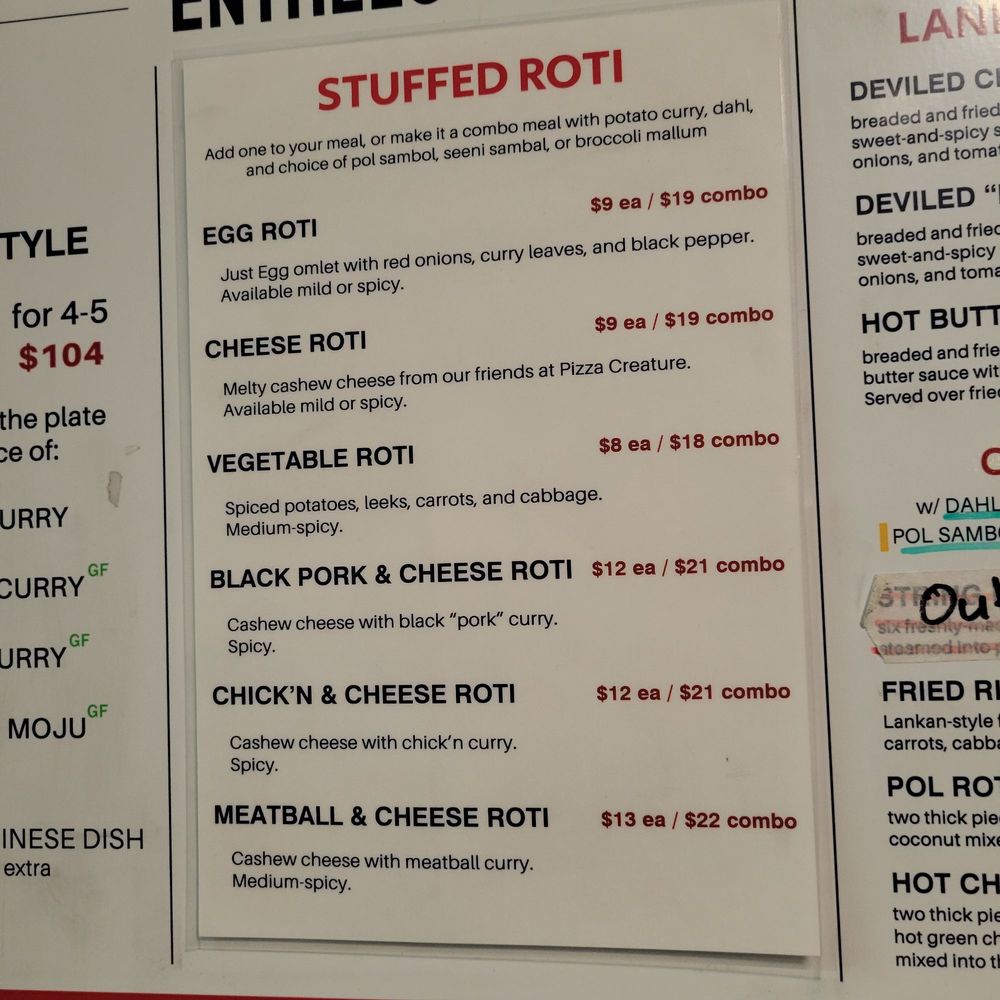 TYLE
for 4-5
$104
the plate
ce of:
URRY
CURRY GF
URRY GF
MOJU GF
INESE DISH
extra
STUFFED ROTI
Add one to your meal, or make it a combo meal with potato curry, dahl,
and choice of pol sambol, seeni sambal, or broccoli mallum
EGG ROTI $9 ea / $19 combo
Just Egg omlet with red onions, curry leaves, and black pepper.
Available mild or spicy.
CHEESE ROTI $9 ea / $19 combo
Melty cashew cheese from our friends at Pizza Creature.
Available mild or spicy.
VEGETABLE ROTI $8 ea / $18 combo
Spiced potatoes, leeks, carrots, and cabbage.
Medium-spicy.
BLACK PORK & CHEESE ROTI $12 ea / $21 combo
Cashew cheese with black "pork" curry.
Spicy.
CHICK'N & CHEESE ROTI $12 ea / $21 combo
Cashew cheese with chick'n curry.
Spicy.
MEATBALL & CHEESE ROTI $13 ea / $22 combo
Cashew cheese with meatball curry.
Medium-spicy.
LAN
DEVILED C
breaded and fried
sweet-and-spicy s
onions, and tomat
DEVILED "
breaded and fried
sweet-and-spicy
onions, and toma
HOT BUTT
breaded and frie
butter sauce wit
Served over frie
w/ DAHL
POL SAMBO
Ou
six freshly-
steamed into
FRIED RI
Lankan-style f
carrots, cabba
POL ROT
two thick pie
coconut mixe
HOT CH
two thick pie
hot green ch
mixed into th